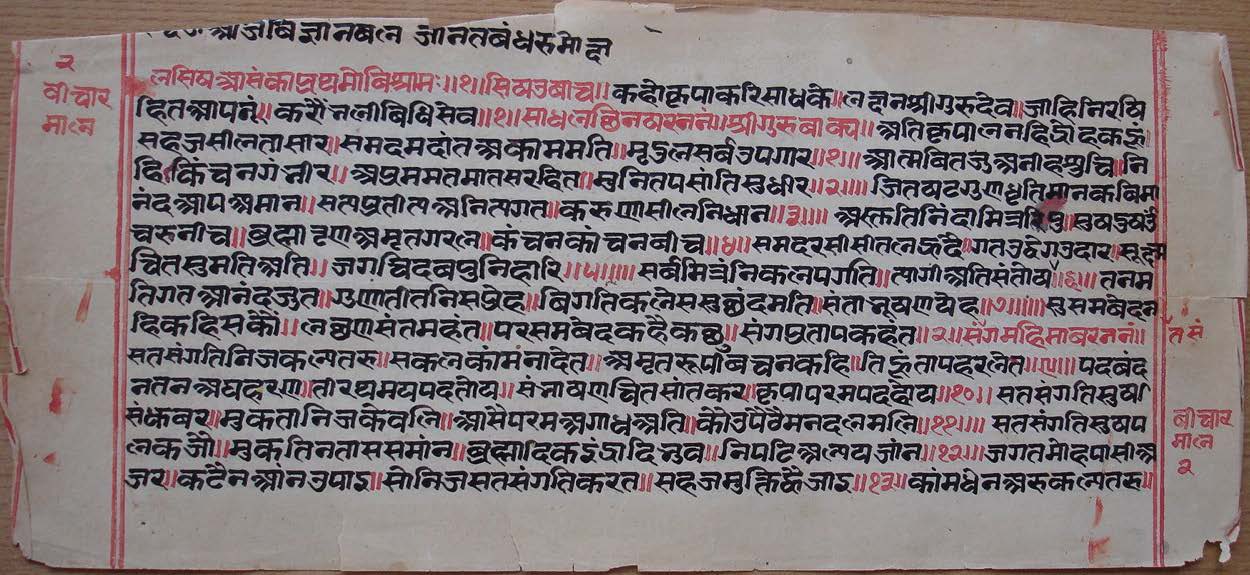 २
बीचार
माल
लसिष्यआसंकाप्रथमोबिश्रामः॥१॥सिष्यउवाच॥कहोकृपाकरिसाधके॥श्रीगुरुदेव॥जाहिनिरषि
हितआपनं॥करौंभलीबिधिसेव॥१॥साधलछिनबरननं॥श्रीगुरुबाक्य॥अतिकृपालनहिद्रोहकहूं
सहजसीलतासार॥समदमदांतअकाममति॥मृदुलसर्वउपगार॥१॥आत्मबितजुअनीहसुचि॥नि
हिकिंचनगंभीर॥अप्रममतमातसरहित॥मुनितपसांतिसुधीर॥२॥जितषटगुणधृतिमानकबिमा
नंदआपअमान॥सत्यप्रतीत्यअनित्यगत॥करुणासीलनिधान॥३॥अस्तुतिनिंदामित्ररिपु॥सुषदुषऊ
चरुनीच॥ब्रह्मातृणअमृतगरल॥कंचनकांचनबीच॥४॥समदरसीसीतलहृदै॥गतउद्वेगउदार॥सूक्षम
चितसुमतिअति॥जगचिदबपुनिहारि॥५॥सर्वमित्रंनिकलपगति॥त्यागीअतिसंतोष॥६॥तनम
तिगतआनंदजुत॥गुणातीतनिसप्रेह॥बिगतिकलेससुछंदमति॥संताभूषणयेह॥७॥सुसमबेदन
हिकहिसकौं॥लछणसंतमहंत॥परसमबेदकहैकछु॥संगप्रतापकहंत॥२॥संगमहिमाबरननं॥
सतसंगतिनिजकल्पतरु॥सकलकांमनादेत॥अमृतरूपीबचनकहि॥तिहूतापहरलेत॥९॥पदबंद
नतनअघहरण॥तीरथमयपददोय॥संभाषणचितसांतकर॥कृपापरमपदहोय॥१०॥सतसंगतिसुषसिं
संकबर॥मुकतानिजकेवलि॥आसैपरमअगाधअति॥कोउपैठैमनदलमलि॥११॥सतसंगतिसुषप
लकजौ॥मुकतिनताससमांन॥ब्रह्मादिकइंद्रादिभुव॥निपटिअल्पयजांन॥१२॥जगतमोहपासीअ
जर॥कटैनआंनउपाइ॥सोनिजसतसंगतिकरत॥सहजमुक्तिह्वैजाइ॥१३॥कांमधेनअरुकल्पतरु॥
बीचार
माल
२